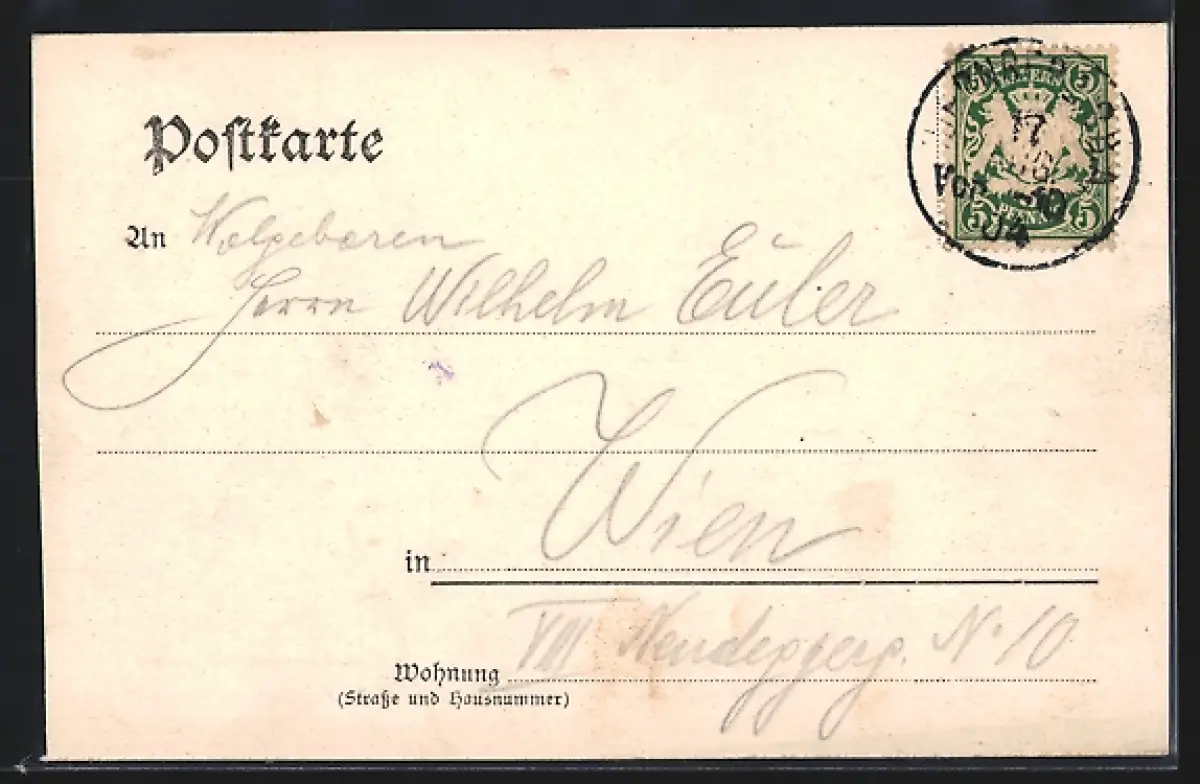 Postkarte
5 BAYERN 5
17
AUG
Vor
04
5 PFENNIG 5
An Wolgeboren
Herrn Wilhelm Euler
in Wien
Wohnung VIII Neudeggerg. No 10
(Straße und Hausnummer)